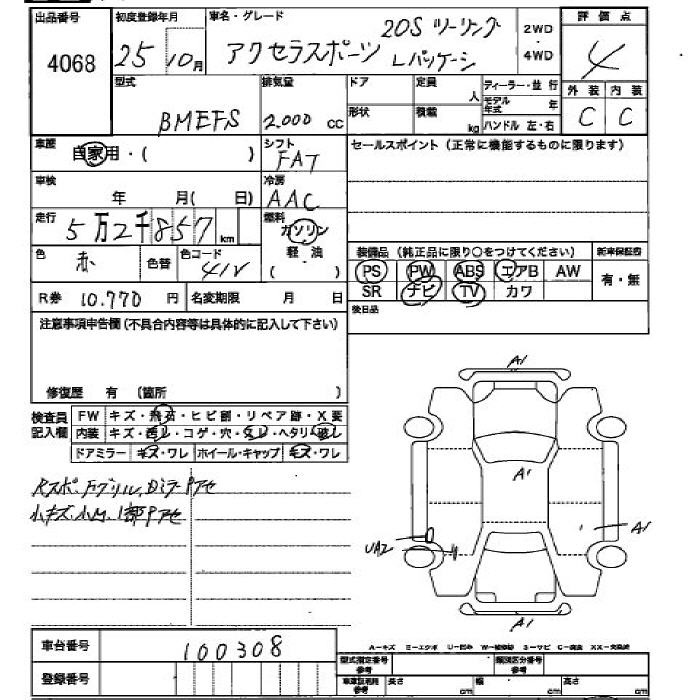 出品番号 4068
初度登録年月 25 10月
車名・グレード アクセラスポーツ 20S ツーリング Lパッケージ
2WD ・ 4WD
評価点 4
外装 内装
C C
型式 BMEFS
排気量 2.000 cc
ドア 定員 人
形状 積載 kg
ディーラー・並行
モデル年式 年
ハンドル 左・右
車歴 自家用・( )
シフト FAT
セールスポイント (正常に機能するものに限ります)
車検 年 月( 日)
冷房 AAC
走行 5万2千857 km
燃料 ガソリン ・ 軽油 ( )
色 赤 色替 色コード 41V
装備品 (純正品に限り○をつけてください)
新車保証書
PS PW ABS エアB AW
有・無
SR ナビ TV カワ
R券 10.770 円 名変期限 月 日
後日品
注意事項申告欄 (不具合内容等は具体的に記入して下さい)
修復歴 有 (箇所 )
検査員記入欄
FW キズ・飛石・ヒビ割・リペア跡・X要
内装 キズ・汚レ・コゲ・穴・スレ・ヘタリ・破レ
ドアミラー キズ・ワレ ホイール・キャップ キズ・ワレ
小キズ.
A1
A1
A1
UA2
A1
車台番号 100308
A-キズ E-エクボ U-凹み W-補修跡 S-サビ C-腐食 XX-交換済
型式指定番号 参考
類別区分番号 参考
登録番号
車庫証明用 参考 長さ cm 幅 cm 高さ cm